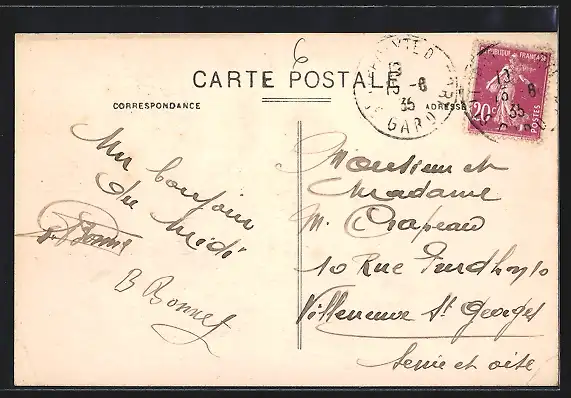 6
CARTE POSTALE
CORRESPONDANCE
ADRESSE
GARD
-6
35
REPUBLIQUE FRANÇAISE
20c
POSTES
-6
35
Un bonjour
du Midi
B Bonnet
Monsieur et
Madame
M. Crapeau
10 Rue
Villeneuve St. Georges
Seine et oise